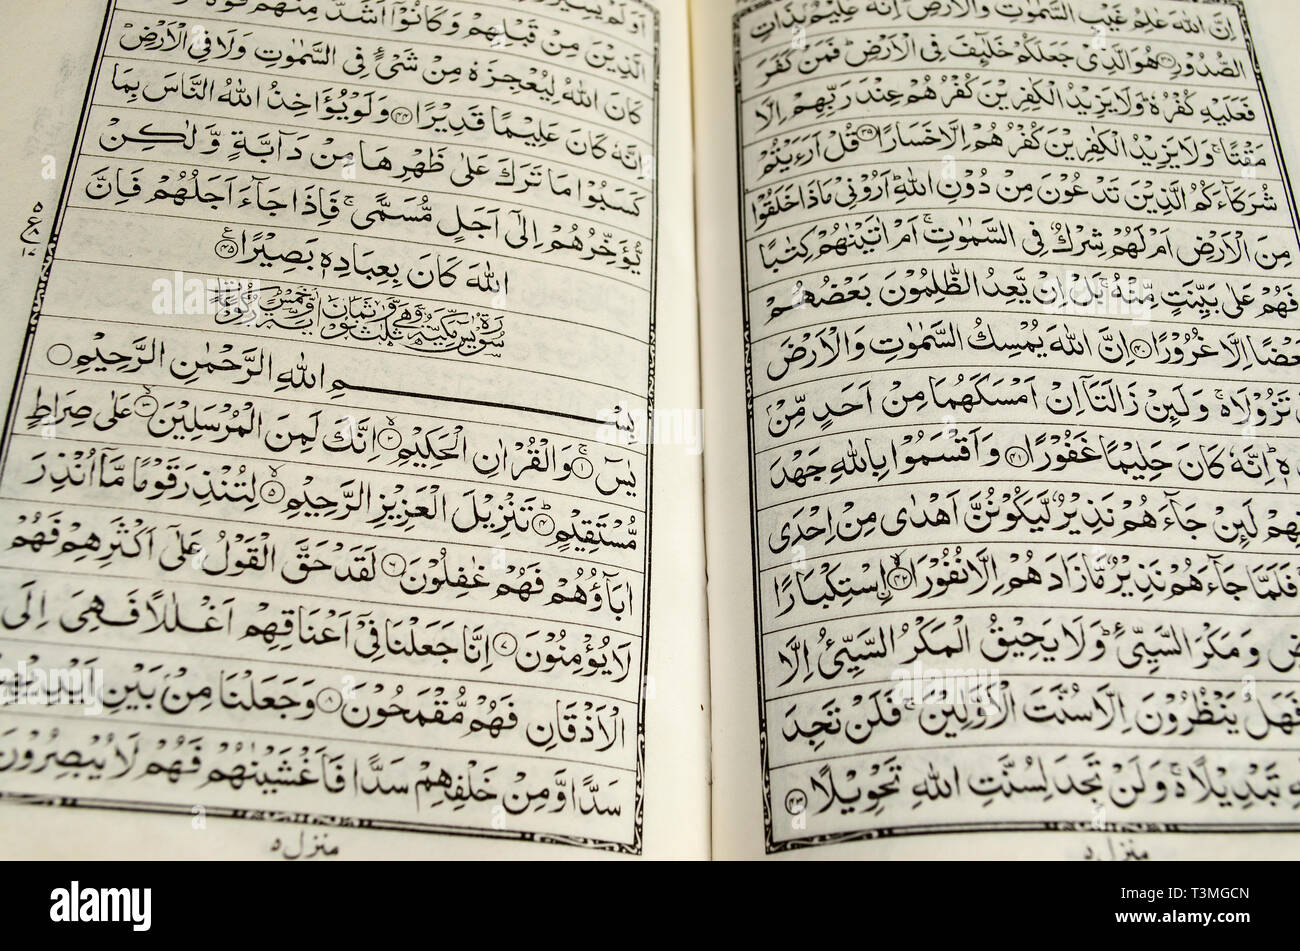 اِنَّ اللهَ عٰلِمُ غَيْبِ السَّمٰوٰتِ وَالْاَرْضِ ؕ اِنَّهٗ عَلِيْمٌۢ بِذَاتِ
الصُّدُوْرِ ﴿۳۸﴾ هُوَ الَّذِيْ جَعَلَكُمْ خَلٰٓئِفَ فِي الْاَرْضِ ؕ فَمَنْ كَفَرَ
فَعَلَيْهِ كُفْرُهٗ ؕ وَلَا يَزِيْدُ الْكٰفِرِيْنَ كُفْرُهُمْ عِنْدَ رَبِّهِمْ اِلَّا
مَقْتًا ۚ وَلَا يَزِيْدُ الْكٰفِرِيْنَ كُفْرُهُمْ اِلَّا خَسَارًا ﴿۳۹﴾ قُلْ اَرَءَيْتُمْ
شُرَكَآءَكُمُ الَّذِيْنَ تَدْعُوْنَ مِنْ دُوْنِ اللهِ ؕ اَرُوْنِيْ مَاذَا خَلَقُوْا
مِنَ الْاَرْضِ اَمْ لَهُمْ شِرْكٌ فِي السَّمٰوٰتِ ۚ اَمْ اٰتَيْنٰهُمْ كِتٰبًا
فَهُمْ عَلٰى بَيِّنَتٍ مِّنْهُ ۚ بَلْ اِنْ يَّعِدُ الظّٰلِمُوْنَ بَعْضُهُمْ
بَعْضًا اِلَّا غُرُوْرًا ﴿۴۰﴾ اِنَّ اللهَ يُمْسِكُ السَّمٰوٰتِ وَالْاَرْضَ
تَزُوْلَا ۚ۬ وَلَئِنْ زَالَتَآ اِنْ اَمْسَكَهُمَا مِنْ اَحَدٍ مِّنْۢ
اِنَّهٗ كَانَ حَلِيْمًا غَفُوْرًا ﴿۴۱﴾ وَاَقْسَمُوْا بِاللهِ جَهْدَ
لَئِنْ جَآءَهُمْ نَذِيْرٌ لَّيَكُوْنُنَّ اَهْدٰى مِنْ اِحْدَى
فَلَمَّا جَآءَهُمْ نَذِيْرٌ مَّا زَادَهُمْ اِلَّا نُفُوْرًا ﴿۴۲﴾ اِسْتِكْبَارًا
وَمَكْرَ السَّيِّئِ ؕ وَلَا يَحِيْقُ الْمَكْرُ السَّيِّئُ اِلَّا
فَهَلْ يَنْظُرُوْنَ اِلَّا سُنَّتَ الْاَوَّلِيْنَ ۚ فَلَنْ تَجِدَ
تَبْدِيْلًا ۚ۬ وَلَنْ تَجِدَ لِسُنَّتِ اللهِ تَحْوِيْلًا ﴿۴۳﴾
منزل ۵
اَوَلَمْ يَسِيْرُوْا
الَّذِيْنَ مِنْ قَبْلِهِمْ وَكَانُوْٓا اَشَدَّ مِنْهُمْ قُوَّةً
كَانَ اللهُ لِيُعْجِزَهٗ مِنْ شَيْءٍ فِي السَّمٰوٰتِ وَلَا فِي الْاَرْضِ
اِنَّهٗ كَانَ عَلِيْمًا قَدِيْرًا ﴿۴۴﴾ وَلَوْ يُؤَاخِذُ اللهُ النَّاسَ بِمَا
كَسَبُوْا مَا تَرَكَ عَلٰى ظَهْرِهَا مِنْ دَآبَّةٍ وَّلٰكِنْ
يُّؤَخِّرُهُمْ اِلٰٓى اَجَلٍ مُّسَمًّى ۚ فَاِذَا جَآءَ اَجَلُهُمْ فَاِنَّ
اللهَ كَانَ بِعِبَادِهٖ بَصِيْرًا ﴿۴۵﴾
سُوْرَةُ يٰسٓ مَكِّيَّةٌ وَّهِيَ ثَلٰثٌ وَّثَمَانُوْنَ اٰيَةً وَّخَمْسُ رُكُوْعَاتٍ
بِسْمِ اللهِ الرَّحْمٰنِ الرَّحِيْمِ
يٰسٓ ﴿۱﴾ وَالْقُرْاٰنِ الْحَكِيْمِ ﴿۲﴾ اِنَّكَ لَمِنَ الْمُرْسَلِيْنَ ﴿۳﴾ عَلٰى صِرَاطٍ
مُّسْتَقِيْمٍ ﴿۴﴾ تَنْزِيْلَ الْعَزِيْزِ الرَّحِيْمِ ﴿۵﴾ لِتُنْذِرَ قَوْمًا مَّآ اُنْذِرَ
اٰبَآؤُهُمْ فَهُمْ غٰفِلُوْنَ ﴿۶﴾ لَقَدْ حَقَّ الْقَوْلُ عَلٰٓى اَكْثَرِهِمْ فَهُمْ
لَا يُؤْمِنُوْنَ ﴿۷﴾ اِنَّا جَعَلْنَا فِيْٓ اَعْنَاقِهِمْ اَغْلٰلًا فَهِيَ اِلَى
الْاَذْقَانِ فَهُمْ مُّقْمَحُوْنَ ﴿۸﴾ وَجَعَلْنَا مِنْۢ بَيْنِ اَيْدِيْهِمْ
سَدًّا وَّمِنْ خَلْفِهِمْ سَدًّا فَاَغْشَيْنٰهُمْ فَهُمْ لَا يُبْصِرُوْنَ
منزل ۵
alamy
Image ID: T3MGCN
www.alamy.com